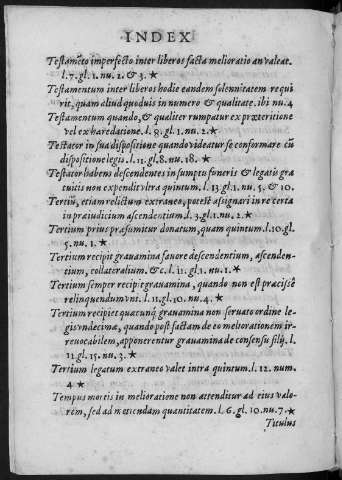 INDEX
Testamẽto imperfecto inter liberos facta melioratio an valeat.
l.7. gl. 1. nu. 2. & 3. ★
Testamentum inter liberos hodie eandem solennitatem requi
rit, quam aliud quoduis in numero & qualitate. ibi nu. 4
Testamentum quando, & qualiter rumpatur ex præteritione
vel exhæredatione. l. 8. gl. 1. nu. 2. ★
Testator in sua dispositione quando videatur se conformare cũ
dispositione legis. l. 11. gl. 8. nu. 18. ★
Testator habens descendentes in sumptu funeris & legatis gra
tuitis non expendit vltra quintum. l. 13. gl. 1. nu. 5. & 10.
Tertiũ, etiam relictum extraneo, potest assignari in re certa
in præiudicium ascendentium. l. 3. gl. 1. nu. 2. ★
Tertium prius præsumitur donatum, quam quintum. l. 10. gl.
5. nu. 1. ★
Tertium recipit grauamina fauore descendentium, ascenden-
tium, collateralium. &c. l. 11. gl. 1. nu. 1. ★
Tertium semper recipit grauamina, quando non est præcisè
relinquendum vni. l. 11. gl. 10. nu. 4. ★
Tertium recipiet quacunq; grauamina non seruato ordine le-
gis vndecima, quando post factam de eo meliorationem ir-
reuocabilem, apponerentur grauamina de consensu filij. l.
12. gl. 15. nu. 3. ★
Tertium legatum extraneo valet intra quintum. l. 12. num.
4 ★
Tempus mortis in melioratione non attenditur ad eius valo-
rem, sed ad metiendam quantitatem. l. 6. gl. 10. nu. 7. ★
Titulus